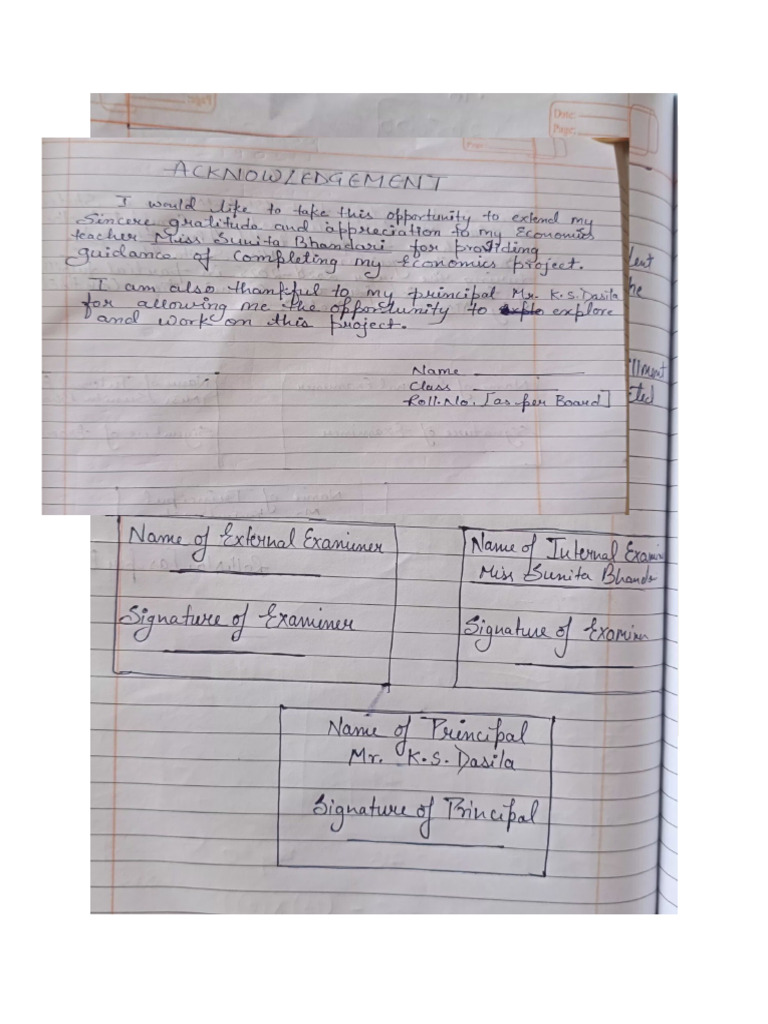 Page:
Date:
Page:
Page:
ACKNOWLEDGEMENT
I would like to take this opportunity to extend my
Sincere gratitude and appreciation to my Economics
teacher Miss Sunita Bhandari for providing
guidance of completing my economics project.
I am also thankful to my principal Mr. K.S. Dasila
for allowing me the opportunity to explo explore
and work on this project.
Name
Class
Roll.No. [as per Board]
Name of External Examiner
Signature of Examiner
Name of Internal Examin
Miss Sunita Bhanda
Signature of Examin
Name of Principal
Mr. K.S. Dasila
Signature of Principal